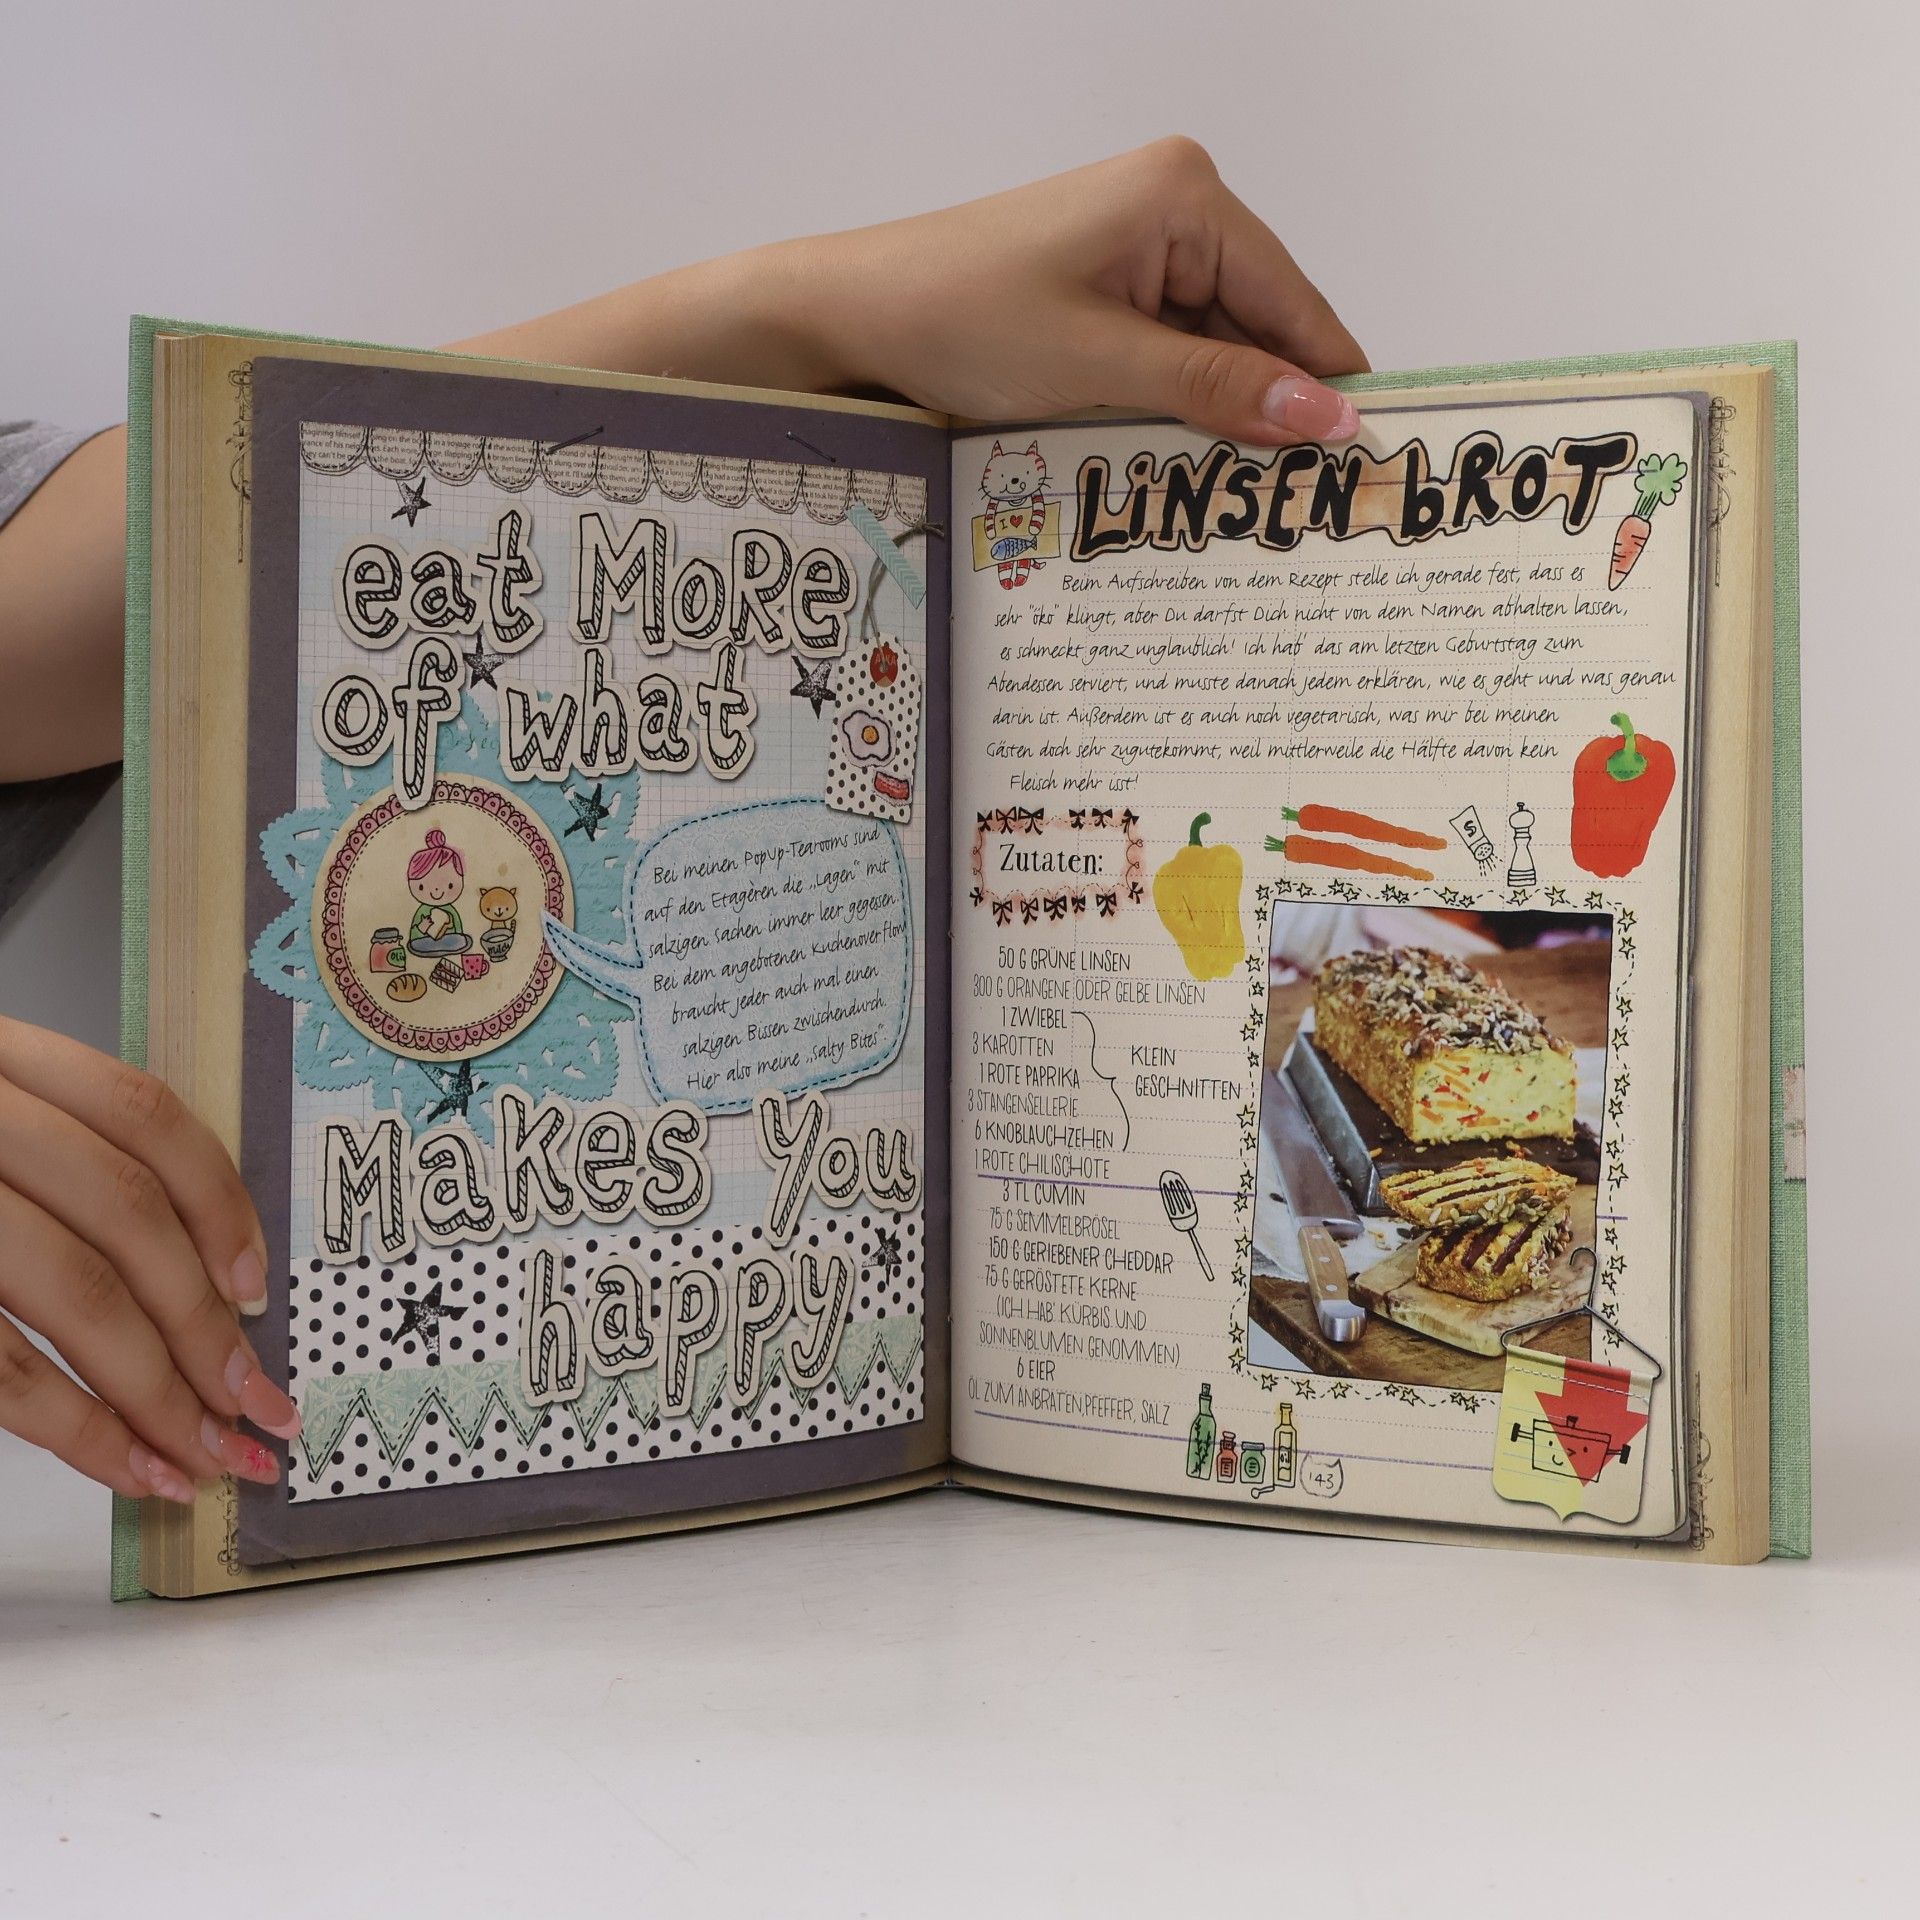 eat MoRe
of what
Bei meinen PopUp-Tearooms sind
auf den Etagèren die „Lagen“ mit
salzigen Sachen immer leer gegessen.
Bei dem angebotenen Kuchenoverflow
braucht jeder auch mal einen
salzigen Bissen zwischendurch.
Hier also meine „Salty Bites“.
Makes You
happy
LiNSEN bROT
I ♥
Beim Aufschreiben von dem Rezept stelle ich gerade fest, dass es
sehr "öko" klingt, aber Du darfst Dich nicht von dem Namen abhalten lassen,
es schmeckt ganz unglaublich! Ich hab' das am letzten Geburtstag zum
Abendessen serviert, und musste danach jedem erklären, wie es geht und was genau
darin ist. Außerdem ist es auch noch vegetarisch, was mir bei meinen
Gästen doch sehr zugutekommt, weil mittlerweile die Hälfte davon kein
Fleisch mehr isst!
Zutaten:
S
50 G GRÜNE LINSEN
300 G ORANGENE ODER GELBE LINSEN
1 ZWIEBEL
3 KAROTTEN
1 ROTE PAPRIKA
3 STANGENSELLERIE
6 KNOBLAUCHZEHEN
KLEIN
GESCHNITTEN
1 ROTE CHILISCHOTE
3 TL CUMIN
75 G SEMMELBRÖSEL
150 G GERIEBENER CHEDDAR
75 G GERÖSTETE KERNE
(ICH HAB' KÜRBIS UND
SONNENBLUMEN GENOMMEN)
6 EIER
ÖL ZUM ANBRATEN, PFEFFER, SALZ
143